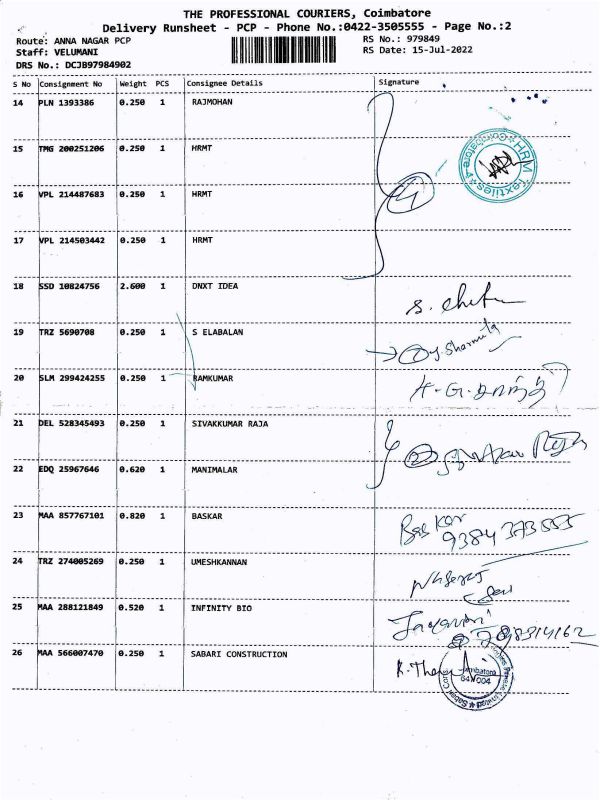 THE PROFESSIONAL COURIERS, Coimbatore
Delivery Runsheet - PCP - Phone No.:0422-3505555 - Page No.:2
Route: ANNA NAGAR PCP RS No.: 979849
Staff: VELUMANI RS Date: 15-Jul-2022
DRS No.: DCJB97984902
S No Consignment No Weight PCS Consignee Details Signature
14 PLN 1393386 0.250 1 RAJMOHAN
15 TMG 200251206 0.250 1 HRMT
HRM Textiles Coimbatore
16 VPL 214487683 0.250 1 HRMT
17 VPL 214503442 0.250 1 HRMT
18 SSD 10824756 2.600 1 DNXT IDEA
19 TRZ 5690708 0.250 1 S ELABALAN
20 SLM 299424255 0.250 1 RAMKUMAR
21 DEL 528345493 0.250 1 SIVAKKUMAR RAJA
22 EDQ 25967646 0.620 1 MANIMALAR
23 MAA 857767101 0.820 1 BASKAR
Baskar
9384373555
24 TRZ 274005269 0.250 1 UMESHKANNAN
25 MAA 288121849 0.520 1 INFINITY BIO
26 MAA 566007470 0.250 1 SABARI CONSTRUCTION